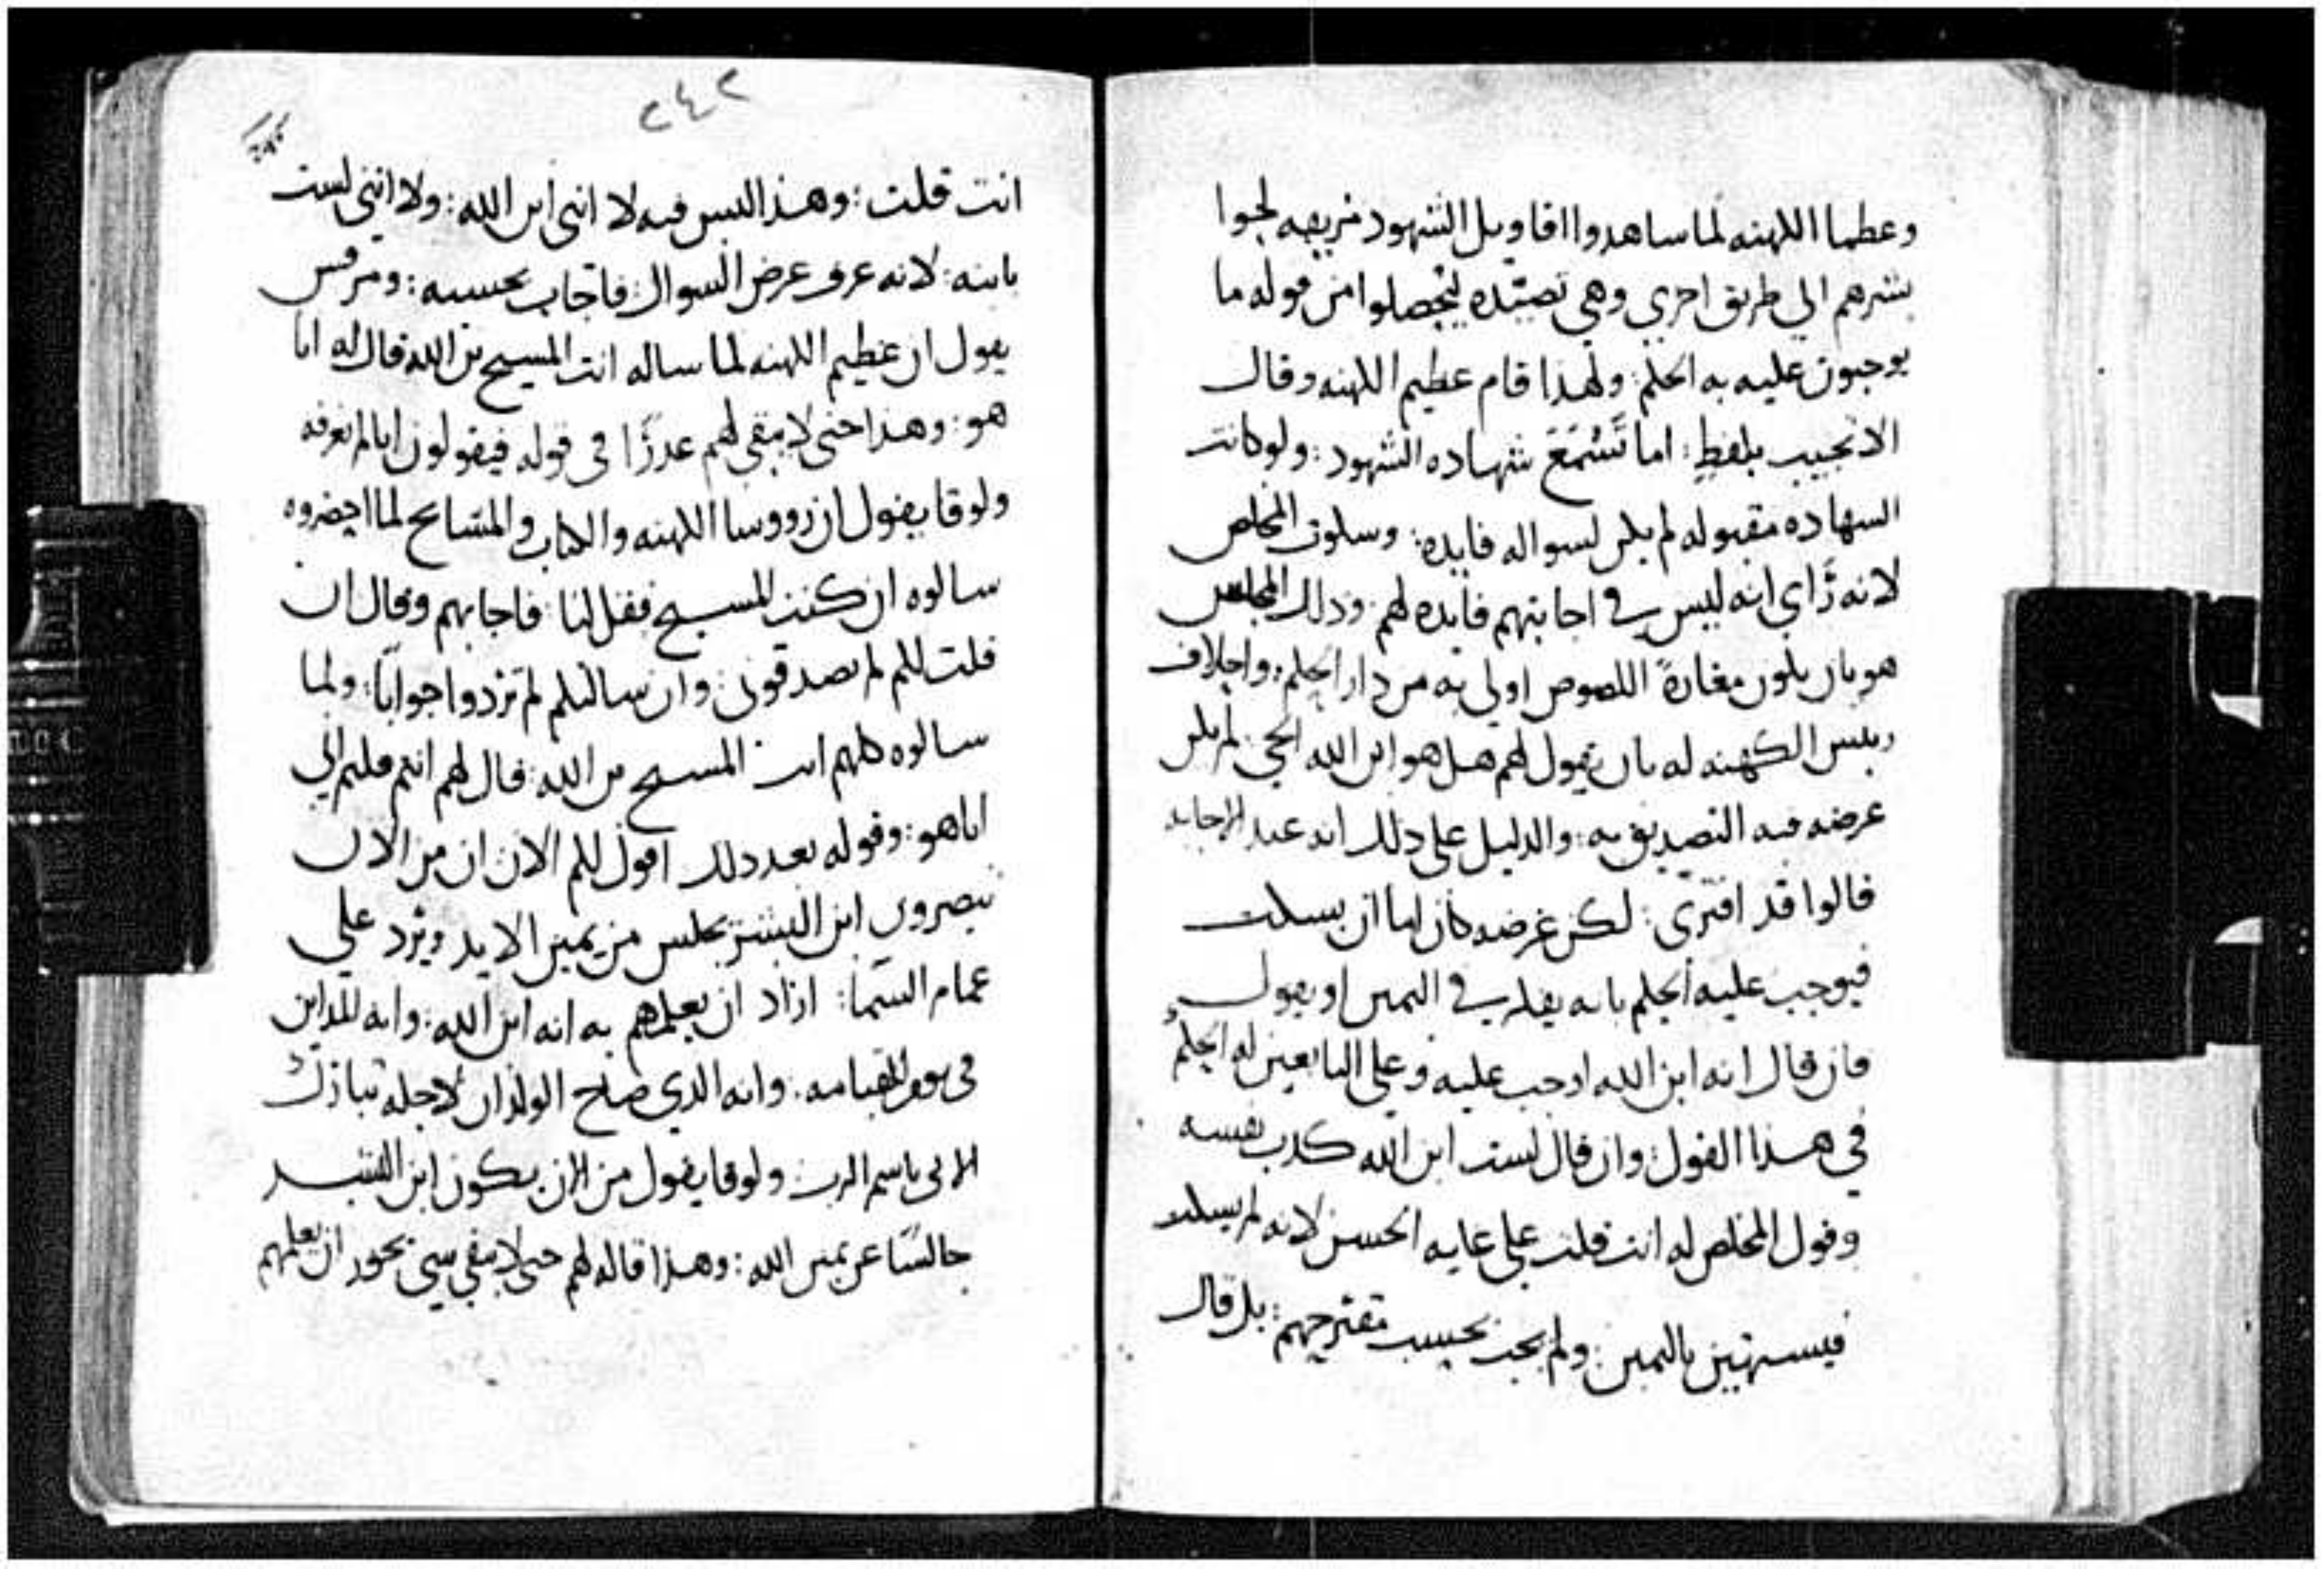 وعظما الكهنه لما ساهدوا اقاويل الشهود مزيفه لجوا
بشرهم الي طريق اخري وهي تصيده ليحصلوا من قوله ما
يوجبون عليه به الحكم: ولهذا قام عظيم الكهنه وقال
الا تجيب بلفظٍ: اما تَسْمَعَ شهاده الشهود: ولو كانت
السهاده مقبوله لم يكن لسواله فايده: وسكوت المخلص
لانه رَاي انه ليس في اجابتهم فايده لهم: ودلك المجلس
هو بان يكون مغارةً اللصوص اولي به من دار الحكم: واحلاف
ريس الكهنه له بان يقول لهم هل هو ابن الله الحي: لم يكن
غرضه فيه التصديق به: والدليل علي ذلك انه عند الاجابه
قالوا قد افترى: لكن غرضه كان اما ان يسكت
فيوجب عليه الحكم بانه يفكر في اليمين او يقول
فان قال انه ابن الله اوجب عليه وعلي التابعين له الحكم
في هذا القول: وان قال لست ابن الله كدب نفسه
وقول المخلص له انت قلت علي غايه الحسن لانه لم يسكت
فيستهين باليمين: ولم يجب بحسب مقترحهم: بل قال
٢٤٢
انت قلت: وهذا ليس فيه لا انني ابن الله: ولا انني لست
بابنه: لانه عرف غرض السوال فاجاب بحسبه: ومرقس
يقول ان عظيم الكهنه لما ساله انت المسيح بن الله قال له انا
هو: وهذا حتي لا يبقي لهم عدرًا في قوله فيقولون اننا لم نعرفه
ولوقا يقول ان رووسا الكهنه والكتاب والمشايخ لما احضروه
سالوه ان كنت المسيح فقل لنا: فاجابهم وقال ان
قلت لكم لم تصدقوني: وان سالتكم لم تردوا جوابًا: ولما
سالوه كلهم انت المسيح بن الله: قال لهم انتم قلتم اني
انا هو: وقوله بعد دلك اقول لكم الان ان من الان
تبصرون ابن البشر يجلس من يمين الايد ويرد علي
غمام السما: اراد ان يعلمهم به انه ابن الله: وانه للداين
في يوم القيامه: وانه الذي صاح الولدان لاجله تبارك
الاتي باسم الرب: ولوقا يقول من الان يكون ابن البشر
جالسًا عن يمين الله: وهذا قاله لهم حتي لا يبقي شي نحو ان يعلمهم